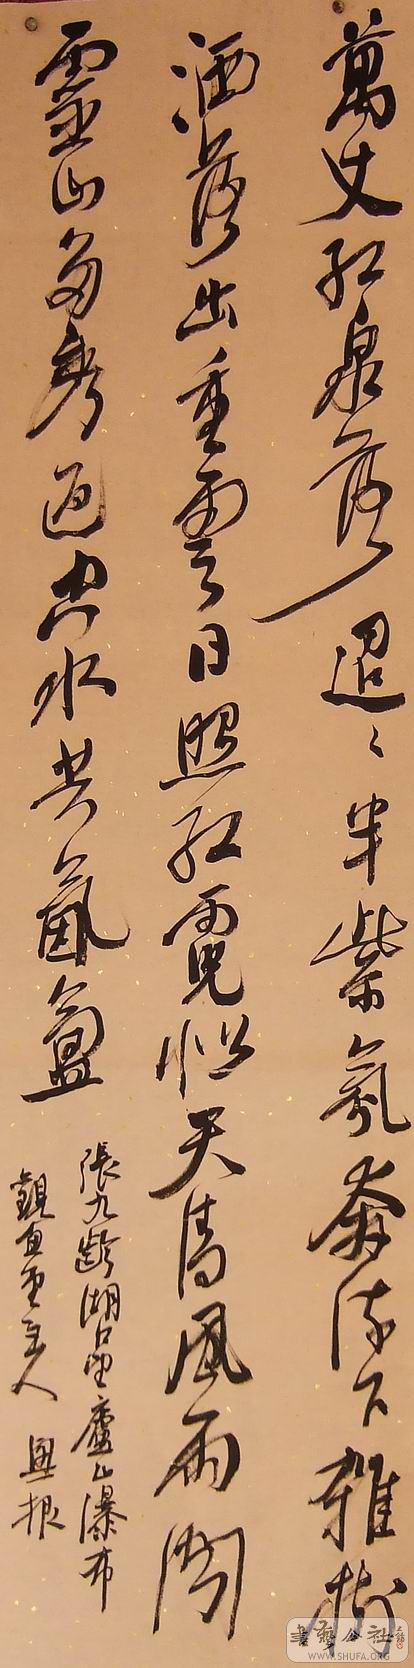 萬丈紅泉落迢〻半紫氛奔流下雜樹
洒落出重雲日照紅霓似天清風雨聞
靈山多秀色空水共氤氳
張九齡湖口望廬山瀑布
主人
書藝公社
WWW.SHUFA.ORG